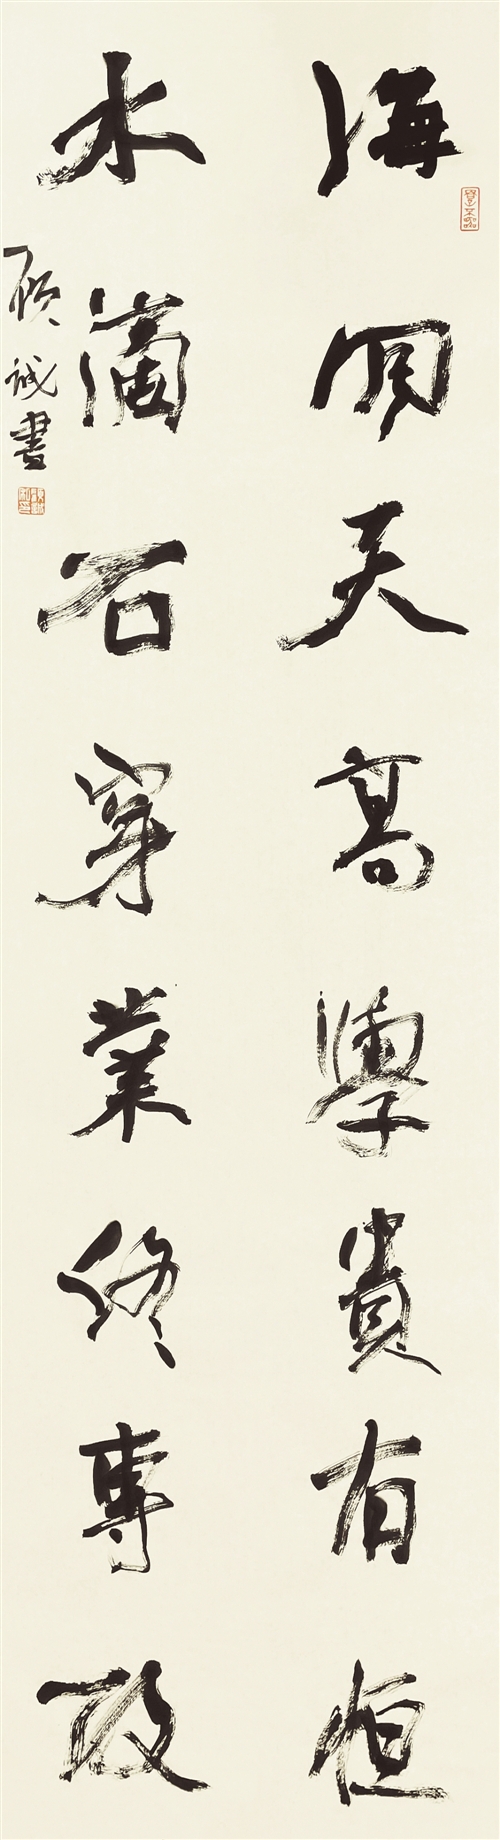 海闊天高學貴有恒
水滴石穿業終專攻
誠書